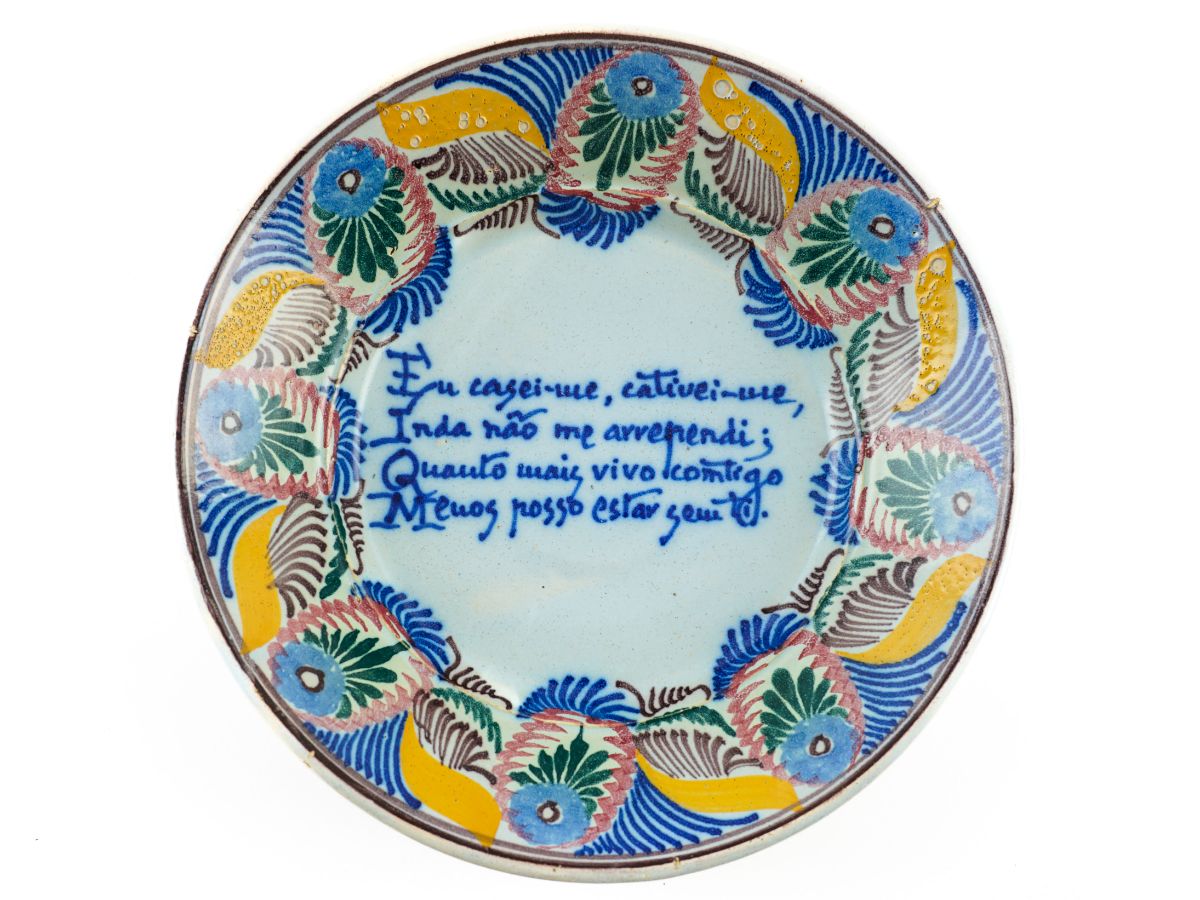 Eu casei-me, cativei-me,
Inda não me arrependi;
Quanto mais vivo comtigo
Menos posso estar sem ti.